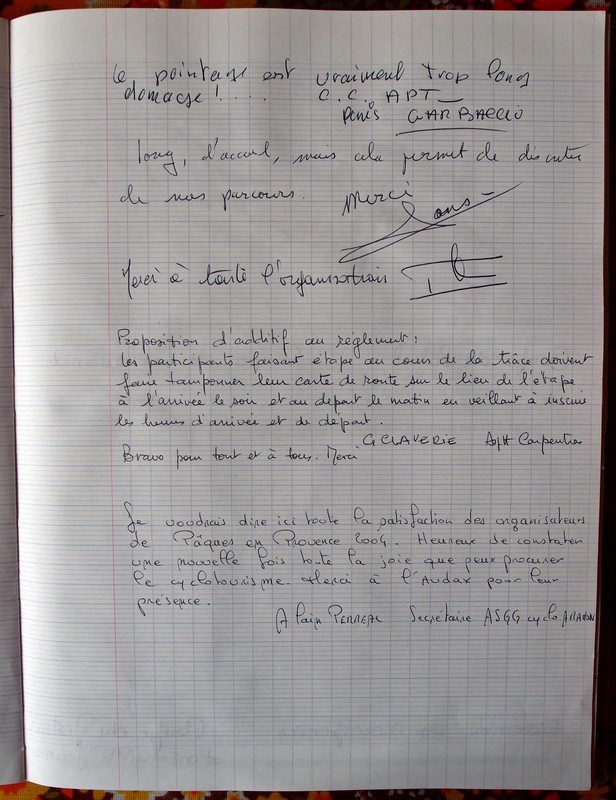 Le pointage est vraiment trop long
domage !.... C.C. APT_
Denis GARBACCIO
long, d'accord, mais cela permet de discuter
de nos parcours. Merci
Merci à toute l'organisation
Proposition d'additif au réglement :
Les participants faisant étape au cours de la trâce doivent
faire tamponner leur carte de route sur le lieu de l'étape
à l'arrivée le soir et au départ le matin en veillant à inscrire
les heures d'arrivée et de départ.
G CLAVERIE Carpentras
Bravo pour tout et à tous. Merci
Je voudrais dire ici toute la satisfaction des organisateurs
de Pâques en Provence 2004. Heureux de constater
une nouvelle fois toute la joie que peux procurer
le cyclotourisme. Merci à l'Audax pour leur
présence.
Alain Secrétaire ASGG cyclo